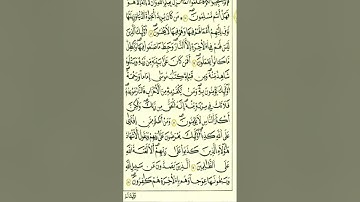 فَإِلَّمْ يَسْتَجِيبُوا لَكُمْ فَاعْلَمُوا أَنَّمَا أُنزِلَ بِعِلْمِ اللَّهِ وَأَن لَّا إِلَٰهَ إِلَّا هُوَ
فَهَلْ أَنتُم مُّسْلِمُونَ ۝ مَن كَانَ يُرِيدُ الْحَيَاةَ الدُّنْيَا وَزِينَتَهَا
نُوَفِّ إِلَيْهِمْ أَعْمَالَهُمْ فِيهَا وَهُمْ فِيهَا لَا يُبْخَسُونَ ۝ أُولَٰئِكَ الَّذِينَ
لَيْسَ لَهُمْ فِي الْآخِرَةِ إِلَّا النَّارُ وَحَبِطَ مَا صَنَعُوا فِيهَا وَبَاطِلٌ
مَّا كَانُوا يَعْمَلُونَ ۝ أَفَمَن كَانَ عَلَىٰ بَيِّنَةٍ مِّن رَّبِّهِ وَيَتْلُوهُ
شَاهِدٌ مِّنْهُ وَمِن قَبْلِهِ كِتَابُ مُوسَىٰ إِمَامًا وَرَحْمَةً
أُولَٰئِكَ يُؤْمِنُونَ بِهِ وَمَن يَكْفُرْ بِهِ مِنَ الْأَحْزَابِ فَالنَّارُ مَوْعِدُهُ
فَلَا تَكُ فِي مِرْيَةٍ مِّنْهُ إِنَّهُ الْحَقُّ مِن رَّبِّكَ وَلَٰكِنَّ
أَكْثَرَ النَّاسِ لَا يُؤْمِنُونَ ۝ وَمَنْ أَظْلَمُ مِمَّنِ افْتَرَىٰ
عَلَى اللَّهِ كَذِبًا أُولَٰئِكَ يُعْرَضُونَ عَلَىٰ رَبِّهِمْ وَيَقُولُ الْأَشْهَادُ
هَٰؤُلَاءِ الَّذِينَ كَذَبُوا عَلَىٰ رَبِّهِمْ أَلَا لَعْنَةُ اللَّهِ
عَلَى الظَّالِمِينَ ۝ الَّذِينَ يَصُدُّونَ عَن سَبِيلِ اللَّهِ
وَيَبْغُونَهَا عِوَجًا وَهُم بِالْآخِرَةِ هُمْ كَافِرُونَ ۝
أُولَٰئِكَ